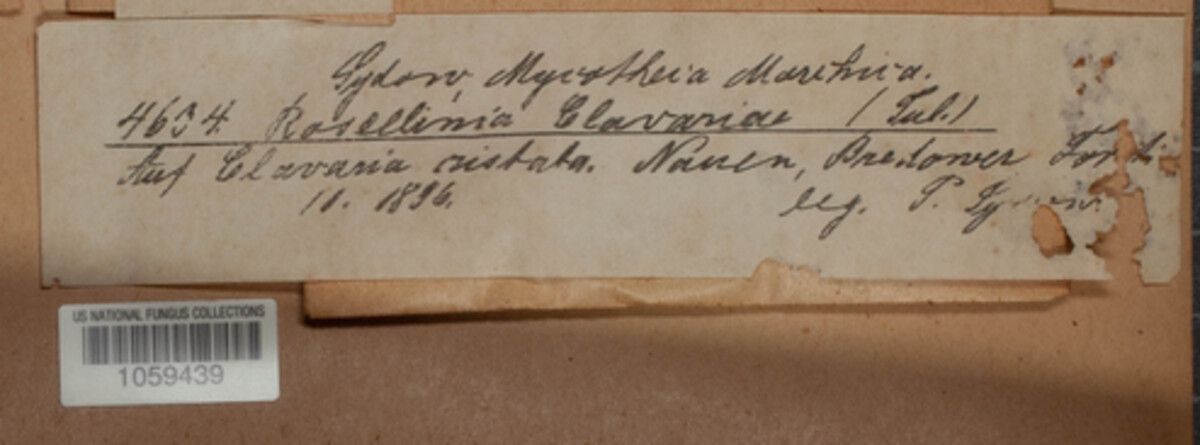 Sydow, Mycotheca Marchica.
4634. Rosellinia Clavariae (Tul.)
Auf Clavaria cristata. Nauen, Bredower Forst
10. 1896. leg. P. Sydow.
US NATIONAL FUNGUS COLLECTIONS
1059439